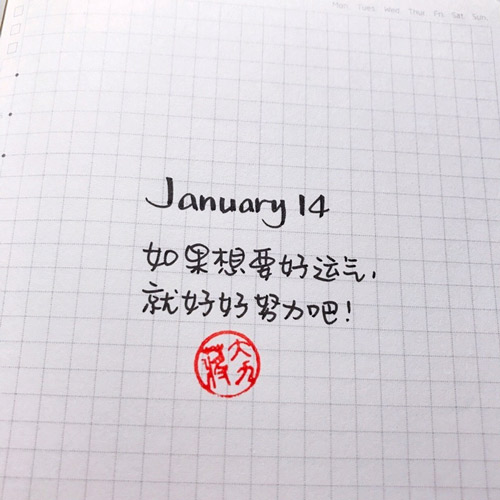 Mon Tues Wed Thur Fri Sat Sun
January 14
如果想要好运气,
就好好努力吧!